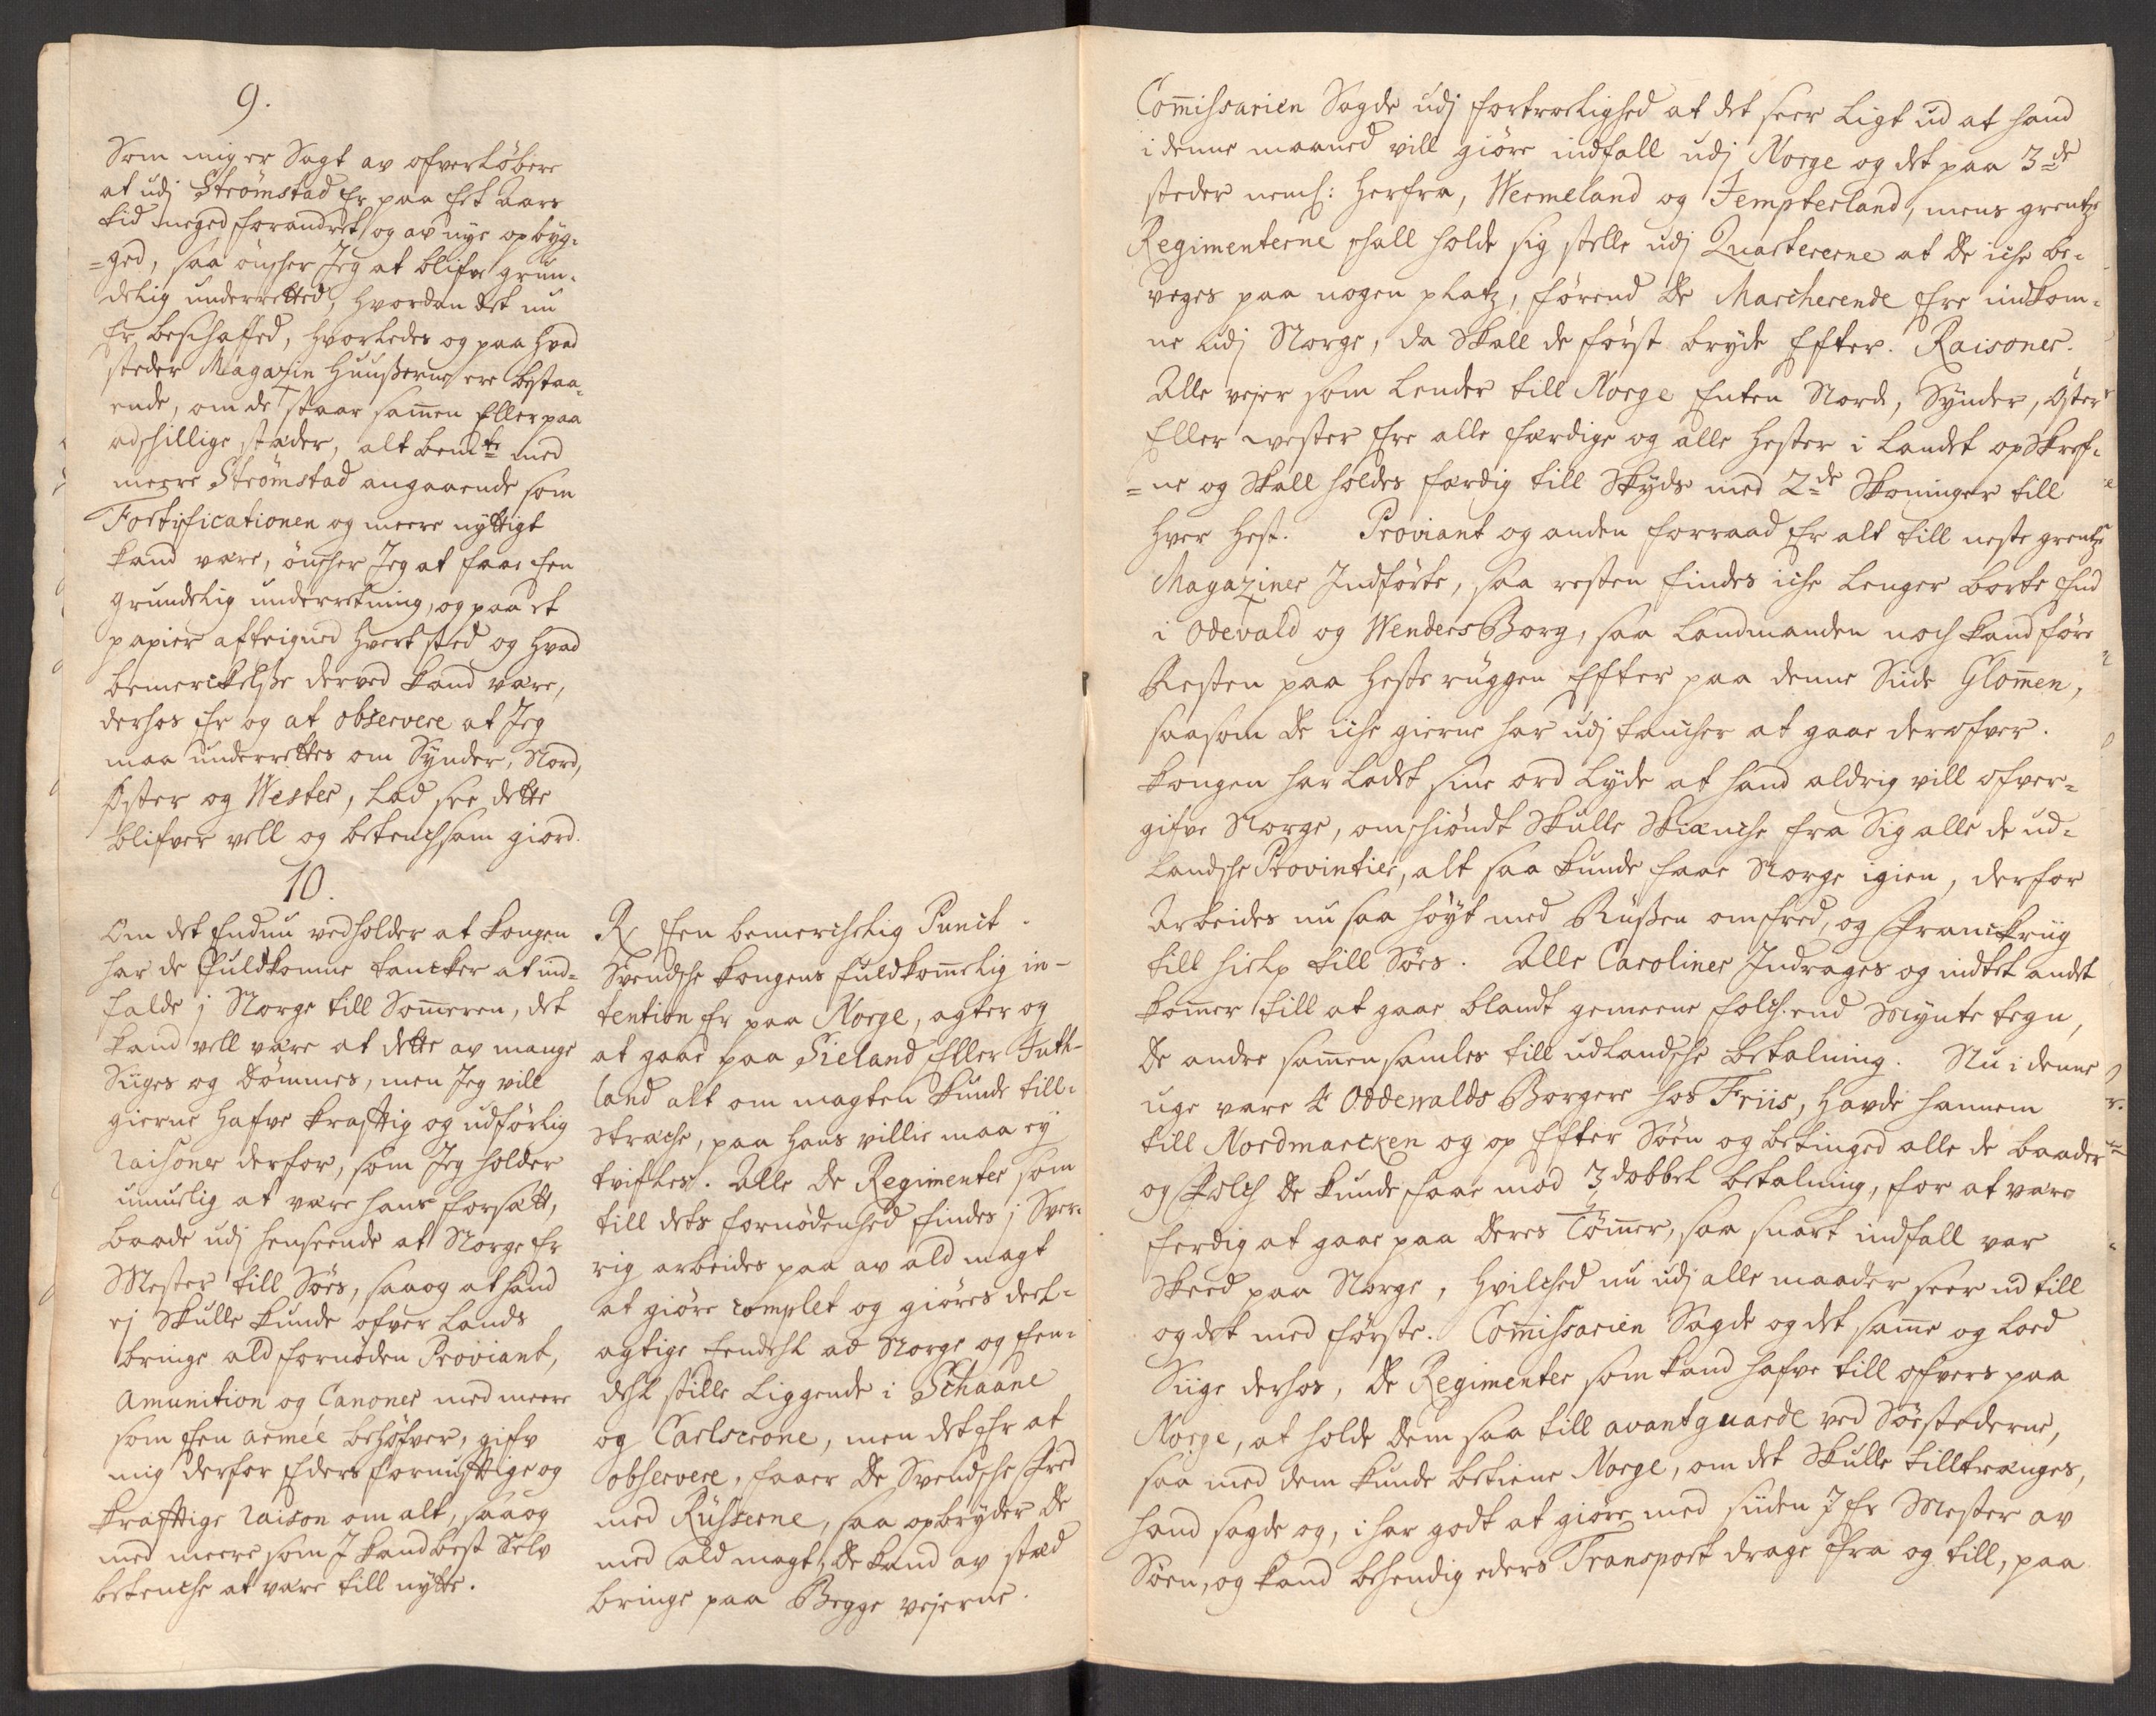 9.
Som mig er Sagt av ofverløbere
at udj Strømstad Er paa Et Aars
tid meged forandret og av nye opbyg-
=ged, saa ønsher Jeg at blifve grun-
delig underretted, hvordan det nu
Er beschaffed, hvorledes og paa hvad
steder Magazin Huußerne ere bestaa-
ende, om de staar samen Eller paa
adshillige stæder, alt bemte med
meere Strømstad angaaende som
Fortificationen og meere nyttigt
kand være, ønsher Jeg at faae Een
grundelig underretning, og paa et
papier afteigned hvert sted og hvad
bemerckelße derved kand være,
derhos Er og at observere at Jeg
maa underrettes om Synder, Nord,
Øster og Wester, lad see dette
blifver vell og betenchsam giord.
10.
Om det Endnu vedholder at kongen
har de Fuldkomne tancker at ind-
falde j Norge till Someren, det
kand vell være at dette av mange
Siiges og dømmes, men Jeg vill
gierne hafve krafftig og udførlig
raisoner derfor, som Jeg holder
umuelig at være hans forsætt,
baade udj henseende at Norge Er
Mester till Søes, saa og at hand
ej Skulle kunde ofver Lands
bringe all fornøden Proviant,
Amunition og Canoner med meere
som Een armée behøfver, gifv
mig derfor Eders fornufftige og
krafftige raison om alt, saa og
med meere som I kand best Selv
betenche at være till nytte.
R Een bemerchelig Punct.
Svendsche kongens fuldkomelig in-
tention Er paa Norge, agter og
at gaae paa Sieland Eller Juth-
land alt om magten kunde till-
strache, paa hans villie maa ey
tvifles. Alle de Regimenter som
till dets fornødenhed findes j Sver-
rig arbeides paa av ald magt
at giøre complet og giøres deel-
agtige Eendehl ad Norge og Een-
dehl stille liggende i Schaane
og Carlscrone, men det Er at
observere, faaer de Svendsche Fred
med Rüsserne, saa opbryder de
med ald magt, de kand av stæd
bringe paa Begge vejerne.
Comissarien Sagde udj fortroelighed at det seer Ligt ud at hand
i denne maaned vill giøre indfall udj Norge og det paa 3de
steder neml: herfra, Wermeland og Jempterland, mens grentze
Regimenterne shall holde sig stelle udj Quartererne at de iche be-
veges paa nogen platz, førend de Marcherende Ere indkom-
ne udj Norge, da Skall de først bryde Efter. Raisoner.
Alle vejer som lender till Norge Enten Nord, Synder, Øster
Eller wester Ere alle færdige og alle hester i landet opskref-
=ne og Skall holdes færdig till Skyds med 2de Skoninger till
hver hest. Proviant og anden forraad Er alt till neste grentze
Magaziner Indførte, saa resten findes iche lenger borte End
i Odevald og WendersBorg, saa landmanden noch kand føre
Resten paa heste ryggen Efter paa denne Siide Glomen,
saasom de iche gierne har udj taucher at gaae derofver.
kongen har ladet sine ord lyde at hand aldrig vill ofver-
gifve Norge, omshiøndt Skulle Skienche fra Sig alle de ud-
landsche Provintier, alt saa kunde faae Norge igien, derfor
arbeides nu saa høyt med Rüßen om fred, og Franckriig
till hielp till Søes. Alle Caroliner Indrages og indtet andet
komer till at gaae blandt gemeene folch end Mynte tegn,
de andre samensamles till udlandsche betalning. Nu i denne
uge vare 4 Oddewalds Borgere hos Friis, havde hannem
till Nordmarcken og op Efter Søen og betinged alle de baader
og Folch de kunde faae mod 3 dobbel betalning, for at være
ferdig at gaae paa deres Tømer, saa snart indfall var
Skeed paa Norge, hvilched nu udj alle maader seer ud till
og det med første. Comissarien Sagde og det same og loed
Siige derhos, de Regimenter som kand hafve till ofvers paa
Norge, at holde dem saa till avantguarde ved Søestederne,
saa med dem kunde betiene Norge, om det Skulle tilltrænges,
hand sagde og, i har godt at giøre med siiden I Er Mester av
Søen, og kand behendig eders Transport drage fra og till, paa